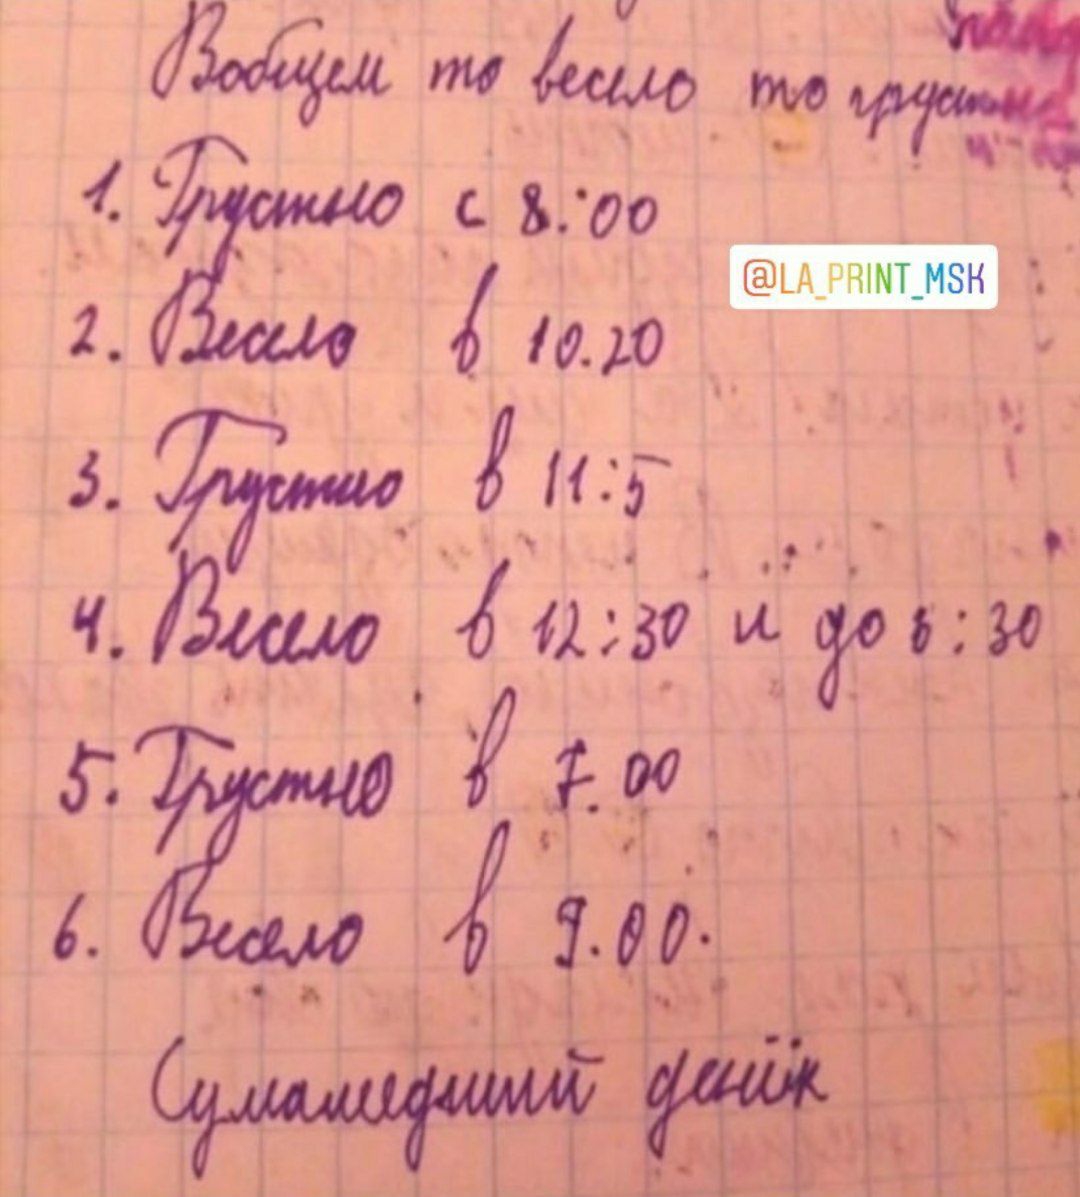 Вобщем то весело то грустно
1. Грустно с 8:00
@LA_PRINT_MSK
2. Весело в 10.20
3. Грустно в 11:5
4. Весело в 12:30 и до 6:30
5. Грустно в 7.00
6. Весело в 9.00.
Сумашедший денёк